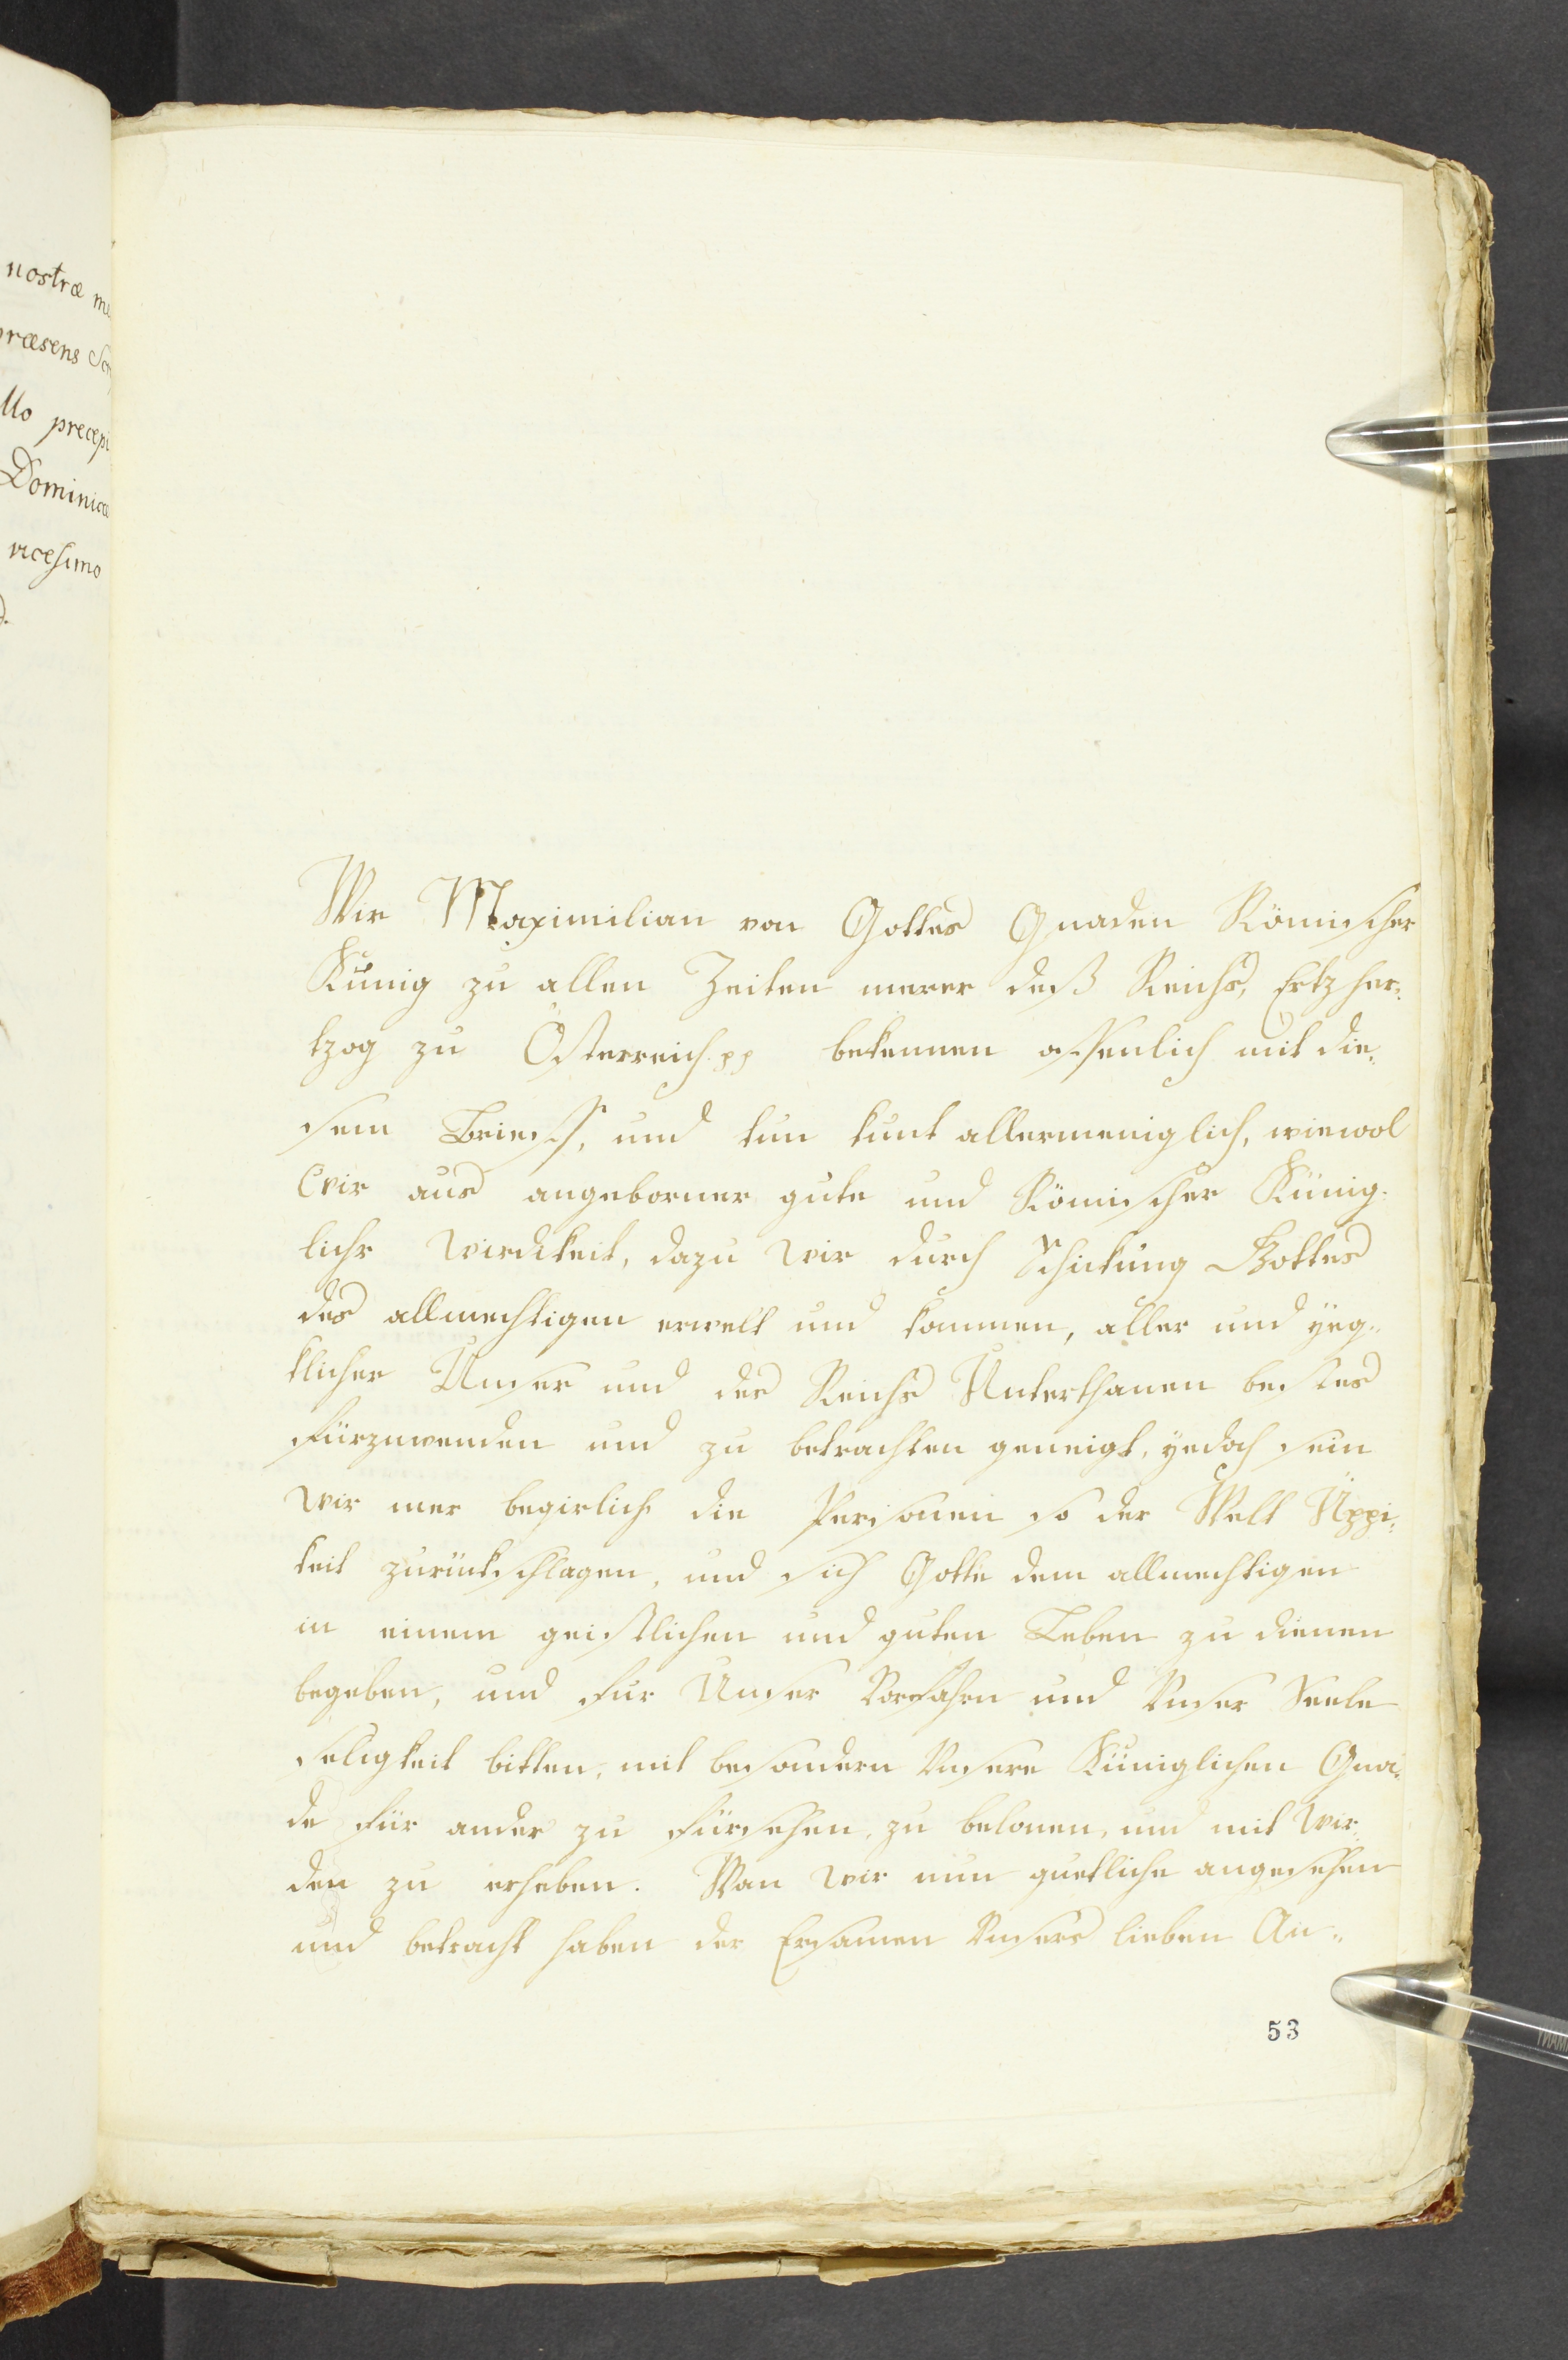 nostræ m
præsens Scr
llo precepi
Dominicæ
vicesimo
Wir Maximilian von Gottes Gnaden Römischer
Künig zu allen Zeiten merer deß Reichs, Ertzher¬
tzog zu Österreich pp bekennen offenlich mit die¬
sem Brieff, und tun kunt allermeniglich, wiewol
Wir aus angeborner gute und Römischer Künig¬
lichr Wirdikeit, dazu Wir durch Schickung Gottes
des allmechtigen erwelt und kommen, aller und yeg¬
klicher Unser und des Reichs Unterthanen bestes
fürzuwenden und zu betrachten geneigt, yedoch sein
Wir mer begirlich die Personen so der Welt Üppi¬
keit zurückschlagen, und sich Gotte dem allmechtigen
in einem geistlichen und guten Leben zu dienen
begeben, und für Unser Vorfahrn und Unser Seele
seligkeit bitten, mit besondern Unsern Küniglichen Gna¬
de für ander zu fürsehen, zu belonen, und mit Wir¬
den zu erheben. Wan Wir nun guetliche angesehen
und betracht haben der Ersamen Unsers lieben An¬
53